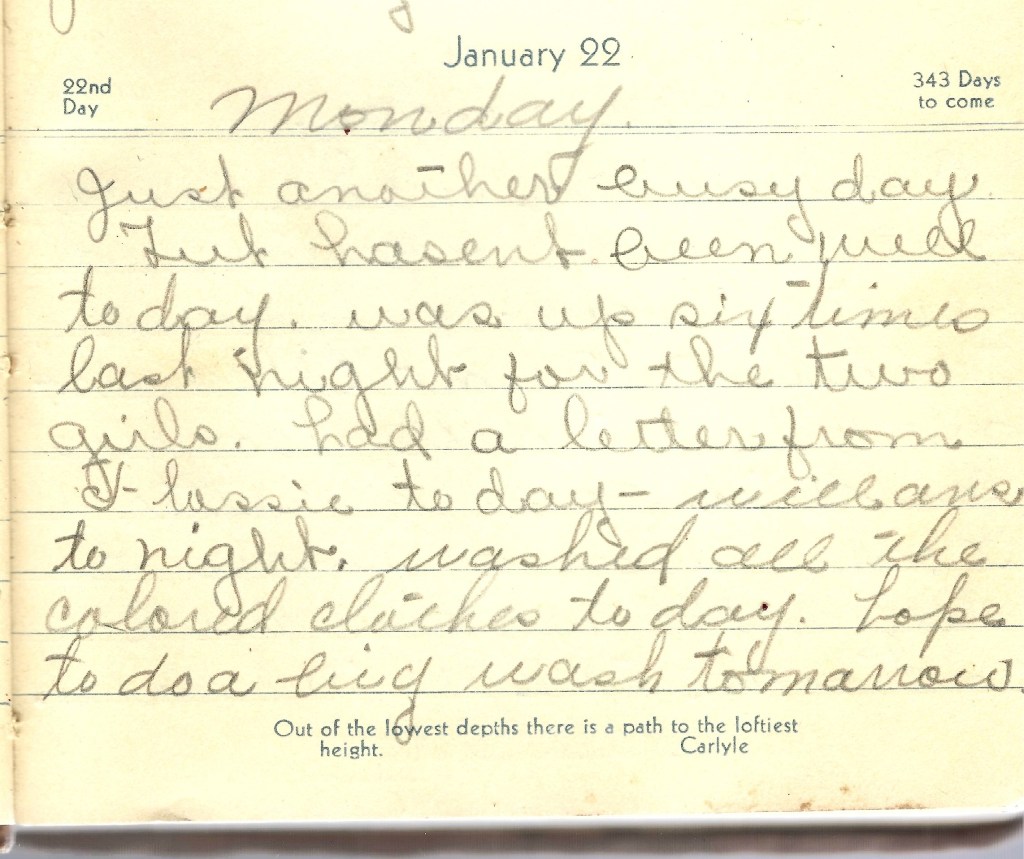 January 22
22nd
Day
343 Days
to come
Monday.
Just another busy day
hasent been well
to day. was up six times
last night for the two
girls. had a letter from
to day - will ans
to night. washed all the
colored clothes to day. hope
to do a big wash tomarrow.
Out of the lowest depths there is a path to the loftiest
height.
Carlyle